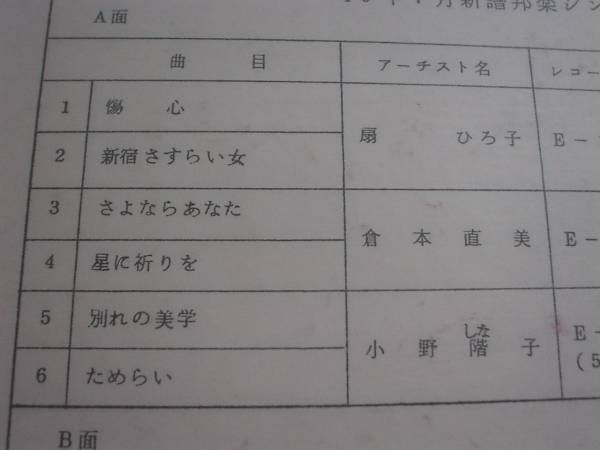 月新譜邦楽シン
A面
曲目 アーチスト名 レコー
1 傷心
扇ひろ子 E-
2 新宿さすらい女
3 さよならあなた
倉本直美 E-
4 星に祈りを
5 別れの美学
しな
小野階子 E- (5
6 ためらい
B面